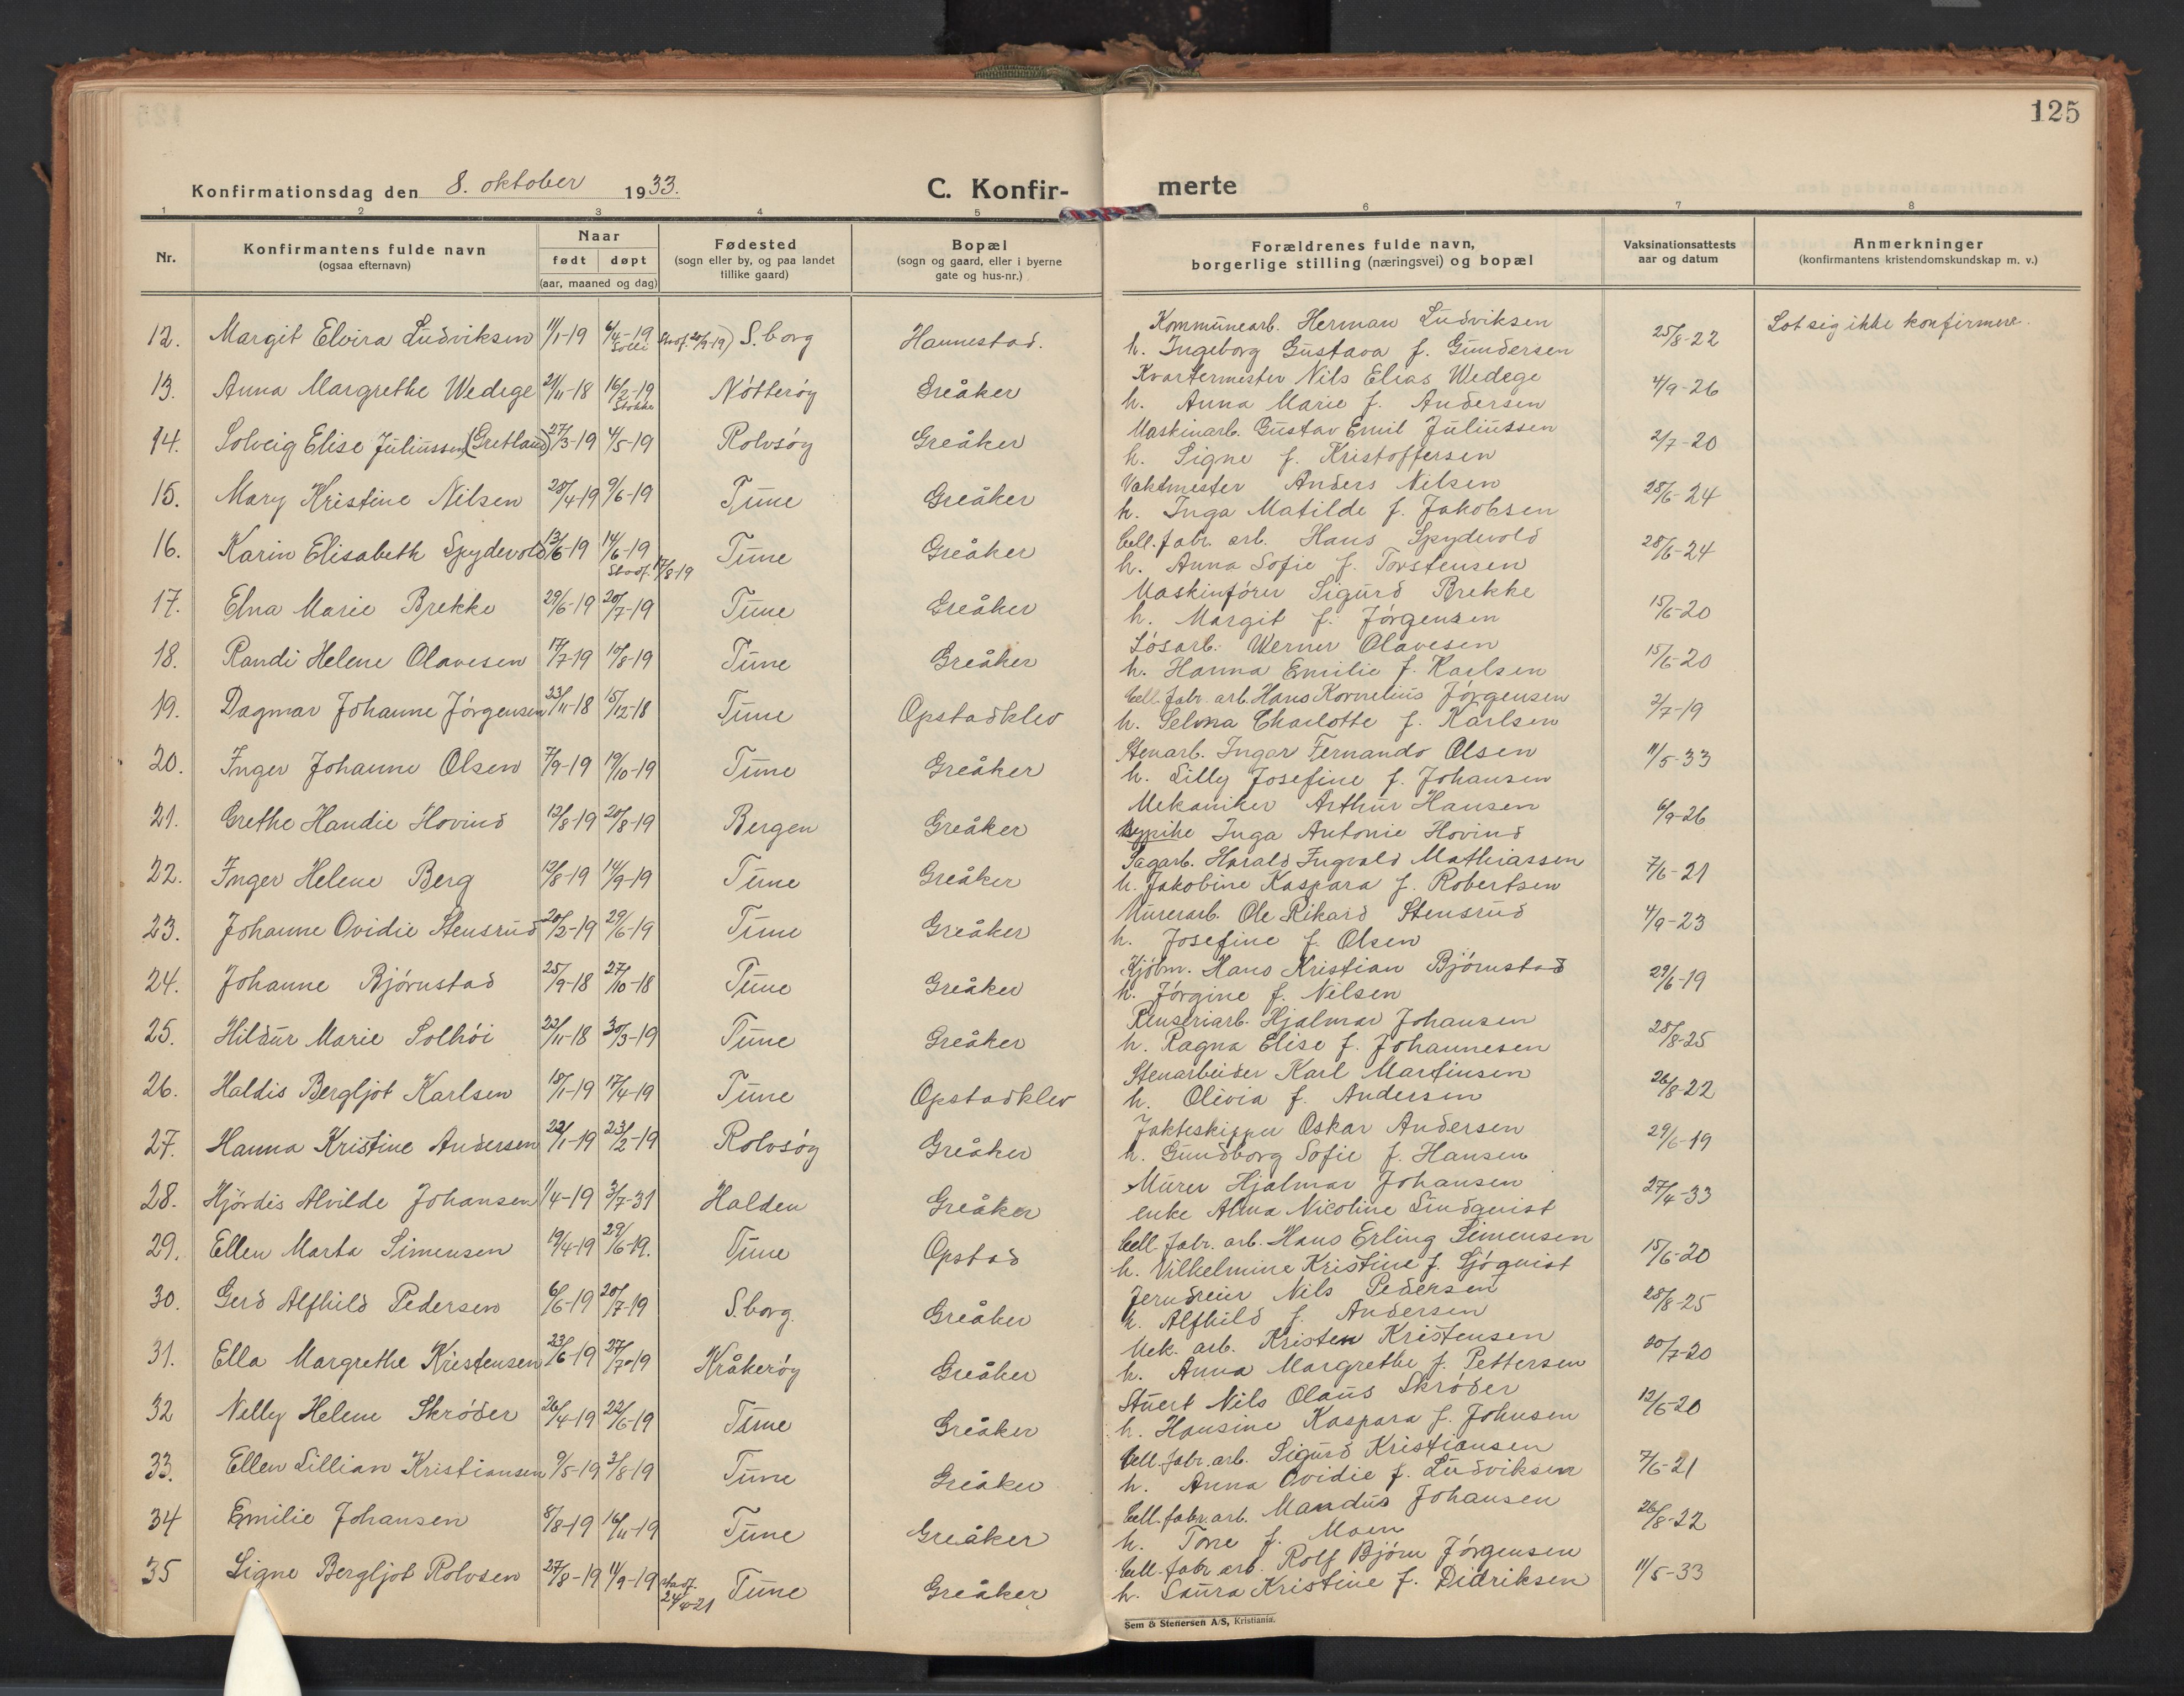 125
Konfirmationsdag den 8. oktober 1933.
C. Konfir- merte
1 2 3 4 5 6 7 8
Nr.
Konfirmantens fulde navn
(ogsaa efternavn)
Naar
født døpt
(aar, maaned og dag)
Fødested
(sogn eller by, og paa landet
tillike gaard)
Bopæl
(sogn og gaard, eller i byerne
gate og hus-nr.)
Forældrenes fulde navn,
borgerlige stilling (næringsvei) og bopæl
Vaksinationsattests
aar og datum
Anmerkninger
(konfirmantens kristendomskundskap m. v.)
12. Margit Elvira Ludviksen 11/1-19 6/4-19 Solli S.borg Hannestad. Kommunearb. Herman Ludviksen 25/8-22 Lot sig ikke konfirmere.
h. Ingeborg Gustava f. Gundersen
13. Anna Margrethe Wedege 21/11-18 16/2-19 Stokke Nötteröy Greåker Kvartermester Nils Elias Wedege 4/9-26
h. Anna Marie f. Andersen
14. Solveig Elise Juliussen (Gretland) 27/3-19 4/5-19 Rolvsöy Greåker Maskinarb. Gustav Emil Juliussen 2/7-20
h. Signe f. Kristoffersen
15. Mary Kristine Nilsen 28/4-19 9/6-19 Tune Greåker Vaktmester Anders Nilsen 28/6-24
h. Inga Matilde f. Jakobsen
16. Karin Elisabeth Spydevold 13/6-19 14/6-19 Stadf. 17/8-19 Tune Greåker Cell. fabr. arb. Hans Spydevold 28/6-24
h. Anna Sofie f. Torstensen
17. Elna Marie Brekke 29/6-19 20/7-19 Tune Greåker Maskinförer Sigurd Brekke 15/6-20
h. Margit f. Jörgensen
18. Randi Helene Olavesen 17/7-19 10/8-19 Tune Greåker Lösarb. Werner Olavesen 15/6-20
h. Hanna Emilie f. Karlsen
19. Dagmar Johanne Jörgensen 23/11-18 15/12-18 Tune Opstadklev Cell. fabr. arb. Hans Kornelius Jörgensen 3/7-19
h. Selma Charlotte f. Karlsen
20. Inger Johanne Olsen 7/9-19 19/10-19 Tune Greåker Stenarb. Ingar Fernando Olsen 11/5-33
h. Lilly Josefine f. Johansen
21. Grethe Handie Hovind 12/8-19 20/8-19 Bergen Greåker Mekaniker Arthur Hansen 6/9-26
Inga Antonie Hovind
22. Inger Helene Berg 13/8-19 14/9-19 Tune Greåker Sagarb. Harald Ingvald Mathiassen 7/6-21
h. Jakobine Kaspara f. Robertsen
23. Johanne Ovidie Stensrud 20/2-19 29/6-19 Tune Greåker Murerarb. Ole Rikard Stensrud 4/9-23
h. Josefine f. Olsen
24. Johanne Björnstad 25/9-18 27/10-18 Tune Greåker Kjöbm. Hans Kristian Björnstad 29/6-19
h. Jörgine f. Nilsen
25. Hildur Marie Solhöi 22/11-18 30/3-19 Tune Greåker Renseriarb. Hjalmar Johansen 28/8-25
h. Ragna Elise f. Johannesen
26. Haldis Bergljot Karlsen 18/1-19 17/4-19 Tune Opstadklev Stenarbeider Karl Martinsen 26/8-22
h. Olivia f. Andersen
27. Hanna Kristine Andersen 22/1-19 23/2-19 Rolvsöy Greåker Jakteskipper Oskar Andersen 29/6-19
h. Gundborg Sofie f. Hansen
28. Hjördis Alvilde Johansen 1/4-19 3/7-31 Halden Greåker Murer Hjalmar Johansen 27/4-33
enke Alma Nicoline Lindqvist
29. Ellen Marta Simensen 19/4-19 29/6-19. Tune Opstad Cell. fabr. arb. Hans Erling Simensen 15/6-20
h. Vilhelmine Kristine f. Sjöqvist
30. Gerd Alfhild Pedersen 6/6-19 20/7-19 S.borg. Greåker Jerndreier Nils Pedersen 28/8-25
h. Alfhild f. Andersen
31. Ella Margrethe Kristensen 23/6-19 27/7-19 Kråkeröy Greåker Mek. arb. Kristen Kristensen 20/7-20
h. Anna Margrethe f. Pettersen
32 Nelly Helene Skröder 26/4-19 22/6-19 Tune Greåker Stuert Nils Olaus Skröder 12/6-20
h. Hansine Kaspara f. Johnsen
33. Ellen Lillian Kristiansen 9/5-19 3/8-19 Tune Greåker Cell. fabr. arb. Sigurd Kristiansen 7/6-21
h. Anna Ovidie f. Ludviksen
34 Emilie Johansen 8/8-19 16/11-19 Tune Greåker Cell. fabr. arb. Mandus Johansen 26/8-22
h. Tone f. Moen
35 Signe Bergljot Rolvsen 27/8-19 11/9-19 stadf. 24/4-21 Tune Greåker Cell. fabr. arb. Rolf Björn Jörgensen 11/5-33
h. Laura Kristine f. Didriksen
Sem & Stenersen A/S, Kristiania.